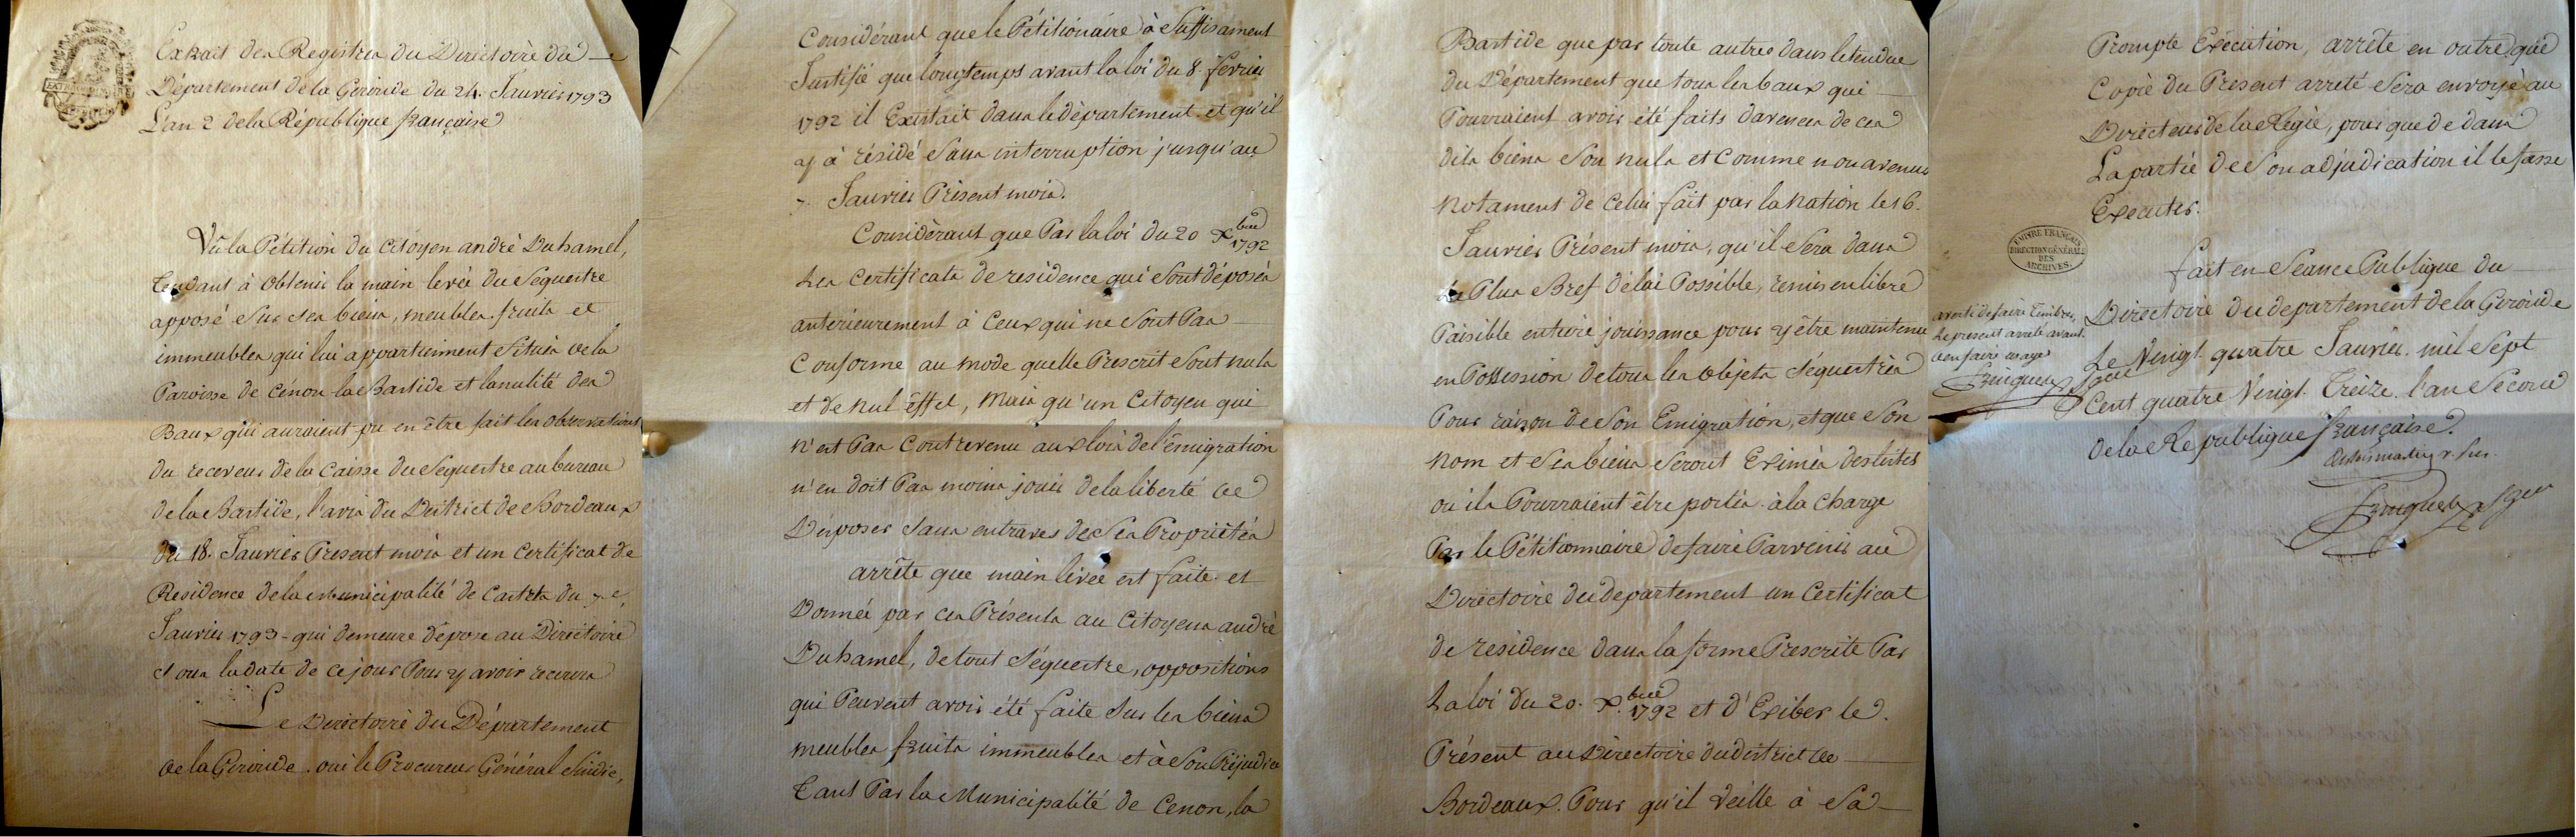 Extrait des Registres du Directoire du
Département de la Gironde du 24. Janvier 1793
L'an 2 de la République française
Vû la Pétition du citoyen andré Duhamel,
tendant à obtenir la main levée du Sequestre
apposé Sur ses biens, meubles. fruits et
immeubles qui lui appartiennent Situés de la
Paroisse de Cénon-la Bastide et lanulité des
Baux qui auraient pu en être fait les observations
du receveur de la Caisse du Sequestre au bureau
de la Bastide, l'avis du District de Bordeaux
du 18. Janvier Present mois et un Certificat de
Residence de la Municipalité de Castets du 7e,
Janvier 1793 - qui demeure déposé au Directoire
Sous la date de ce jour Pour y avoir recours
Le Directoire du Département
de la Gironde. oui le Procureur Général Sindic,
Considérant que le Pétitionaire à Suffisament
Justifié que longtemps avant la loi du 8. février
1792 il Existait dans le département et qu'il
y à résidé Sans interruption jusqu'au
7. Janvier Présent mois.
Considèrant que Par la loi du 20 Xbre 1792
Les Certificats de residence qui Sont déposés
antérieurement à Ceux qui ne Sont Pas
Conforme au mode quelle Prescrit Sont nuls
et de nul éffet, Mais qu'un Citoyen qui
n'est Pas Contrevenu aux lois de l'émigration
n'en doit Pas moins jouir de la liberté de
Disposer Sans entraves de Ses Propriétés
arrête que main livée est faite et
Donnée par ces Présents au Citoyens andrè
Duhamel, de tout Séquestre, oppositions
qui Peuvent avoir été faite Sur les biens
meubles fruits immeubles et à Son Préjudice
tant Par la Municipalité de Cenon, la
Bastide que par toute autres dans letendue
du Département que tous les baux qui
Pourraient avoir été faits davences de ces
dits biens Son nuls et Comme non avenus
Notament de Celui fait par la Nation le 16.
Janvier Présent mois, qu'il Sera dans
Le Plus Bref délai Possible, remis en libre
Paisible entiere jouissance pour y être maintenu
en Possession de tous les objets Séquestrés
Pour raison de Son Emigration, et que Son
Nom et Ses biens Seront Eximés des listes
ou ils Pourraient être portés. à la Charge
Par le Pétitionnaire de faire Parvenir au
Directoire du departement un Certificat
de résidence dans la forme Prescrite Par
La loi du 20. Xbre 1792 et d'Exiber le.
Présent au Directoire du district de
Bordeaux. Pour qu'il veille à Sa
Prompte Exécution, arrête en outre que
Copie du Present arreté Sera envoyé au
Directeur de la Régie, pour que de dans
La partie de Son adjudication il le fasse
Executer.
EMPIRE FRANÇAIS
DIRECTION GÉNÉRALE
DES
ARCHIVES.
fait en Séance Publique du
Directoire du departement de la Gironde
Le Vingt quatre Janvier. mil Sept
Cent quatre Vingt. Treize. l'an Second
de la République française.
averti de faire timbrer
le present arreté avant
d'en faire usage